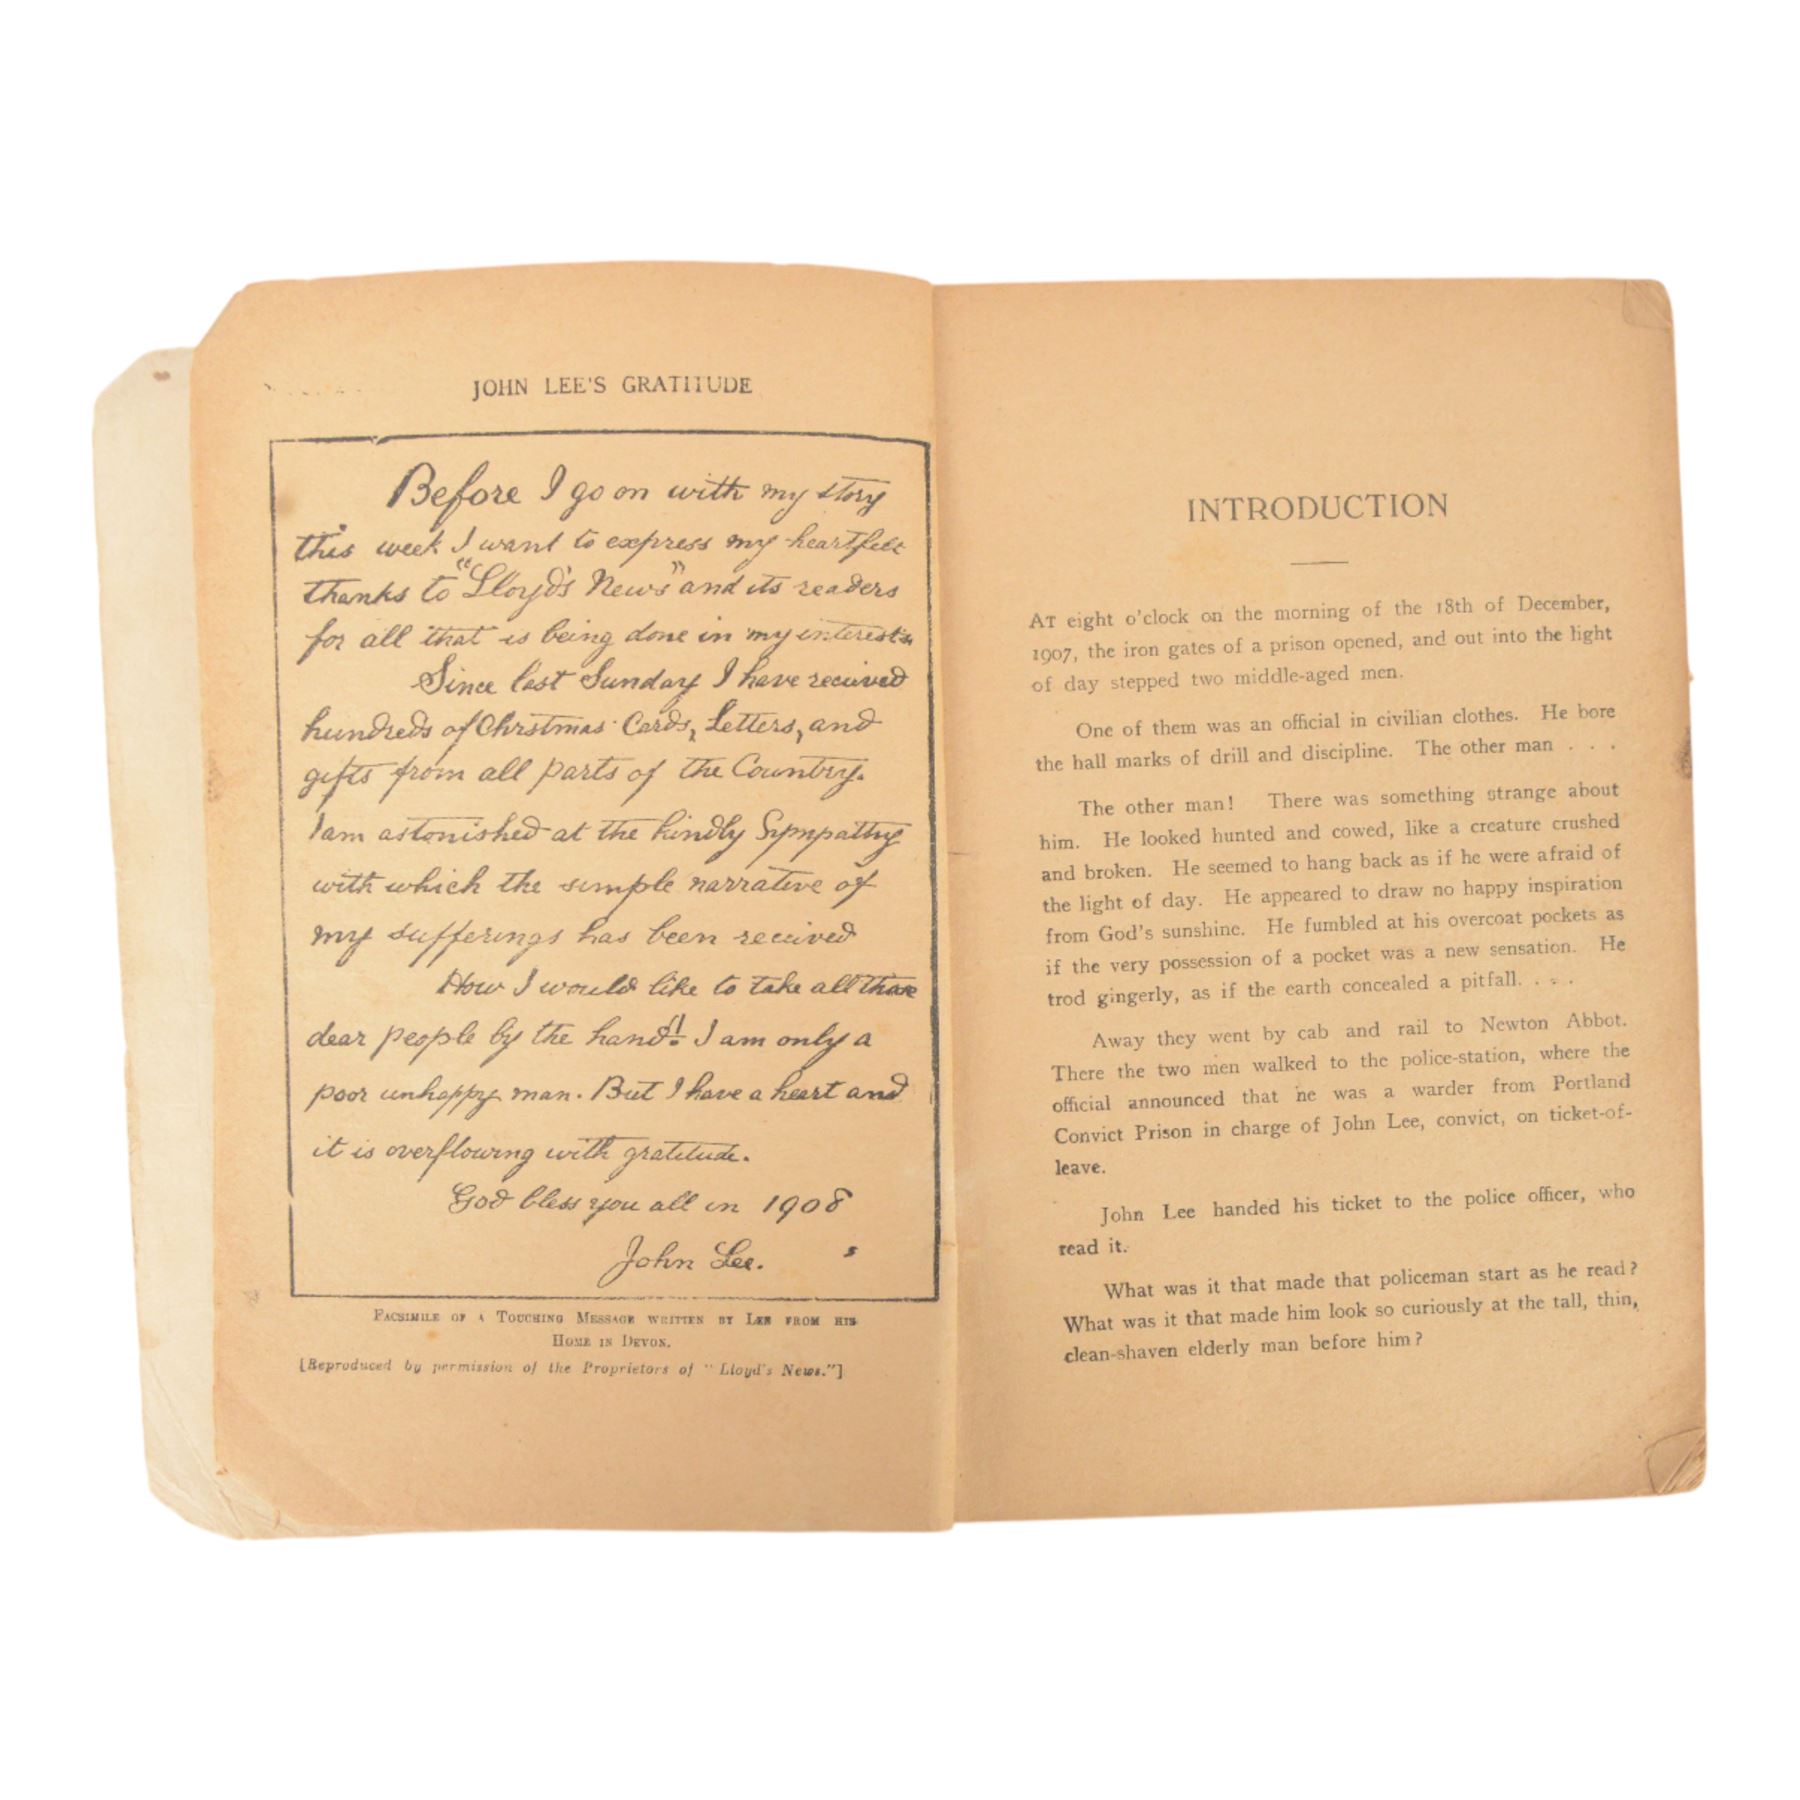 JOHN LEE'S GRATITUDE
Before I go on with my story
this week I want to express my heartfelt
thanks to "Lloyd's News" and its readers
for all that is being done in my interests
Since last Sunday I have received
hundreds of Christmas Cards, Letters, and
gifts from all parts of the Country.
I am astonished at the kindly Sympathy
with which the simple narrative of
my sufferings has been received
How I would like to take all those
dear people by the hand! I am only a
poor unhappy man. But I have a heart and
it is overflowing with gratitude.
God bless you all in 1908
John Lee.
FACSIMILE OF A TOUCHING MESSAGE WRITTEN BY LEE FROM HIS
HOME IN DEVON.
[Reproduced by permission of the Proprietors of "Lloyd's News."]
INTRODUCTION
AT eight o'clock on the morning of the 18th of December,
1907, the iron gates of a prison opened, and out into the light
of day stepped two middle-aged men.
One of them was an official in civilian clothes. He bore
the hall marks of drill and discipline. The other man . . .
The other man! There was something strange about
him. He looked hunted and cowed, like a creature crushed
and broken. He seemed to hang back as if he were afraid of
the light of day. He appeared to draw no happy inspiration
from God's sunshine. He fumbled at his overcoat pockets as
if the very possession of a pocket was a new sensation. He
trod gingerly, as if the earth concealed a pitfall. . . .
Away they went by cab and rail to Newton Abbot.
There the two men walked to the police-station, where the
official announced that he was a warder from Portland
Convict Prison in charge of John Lee, convict, on ticket-of-
leave.
John Lee handed his ticket to the police officer, who
read it.
What was it that made that policeman start as he read?
What was it that made him look so curiously at the tall, thin,
clean-shaven elderly man before him?